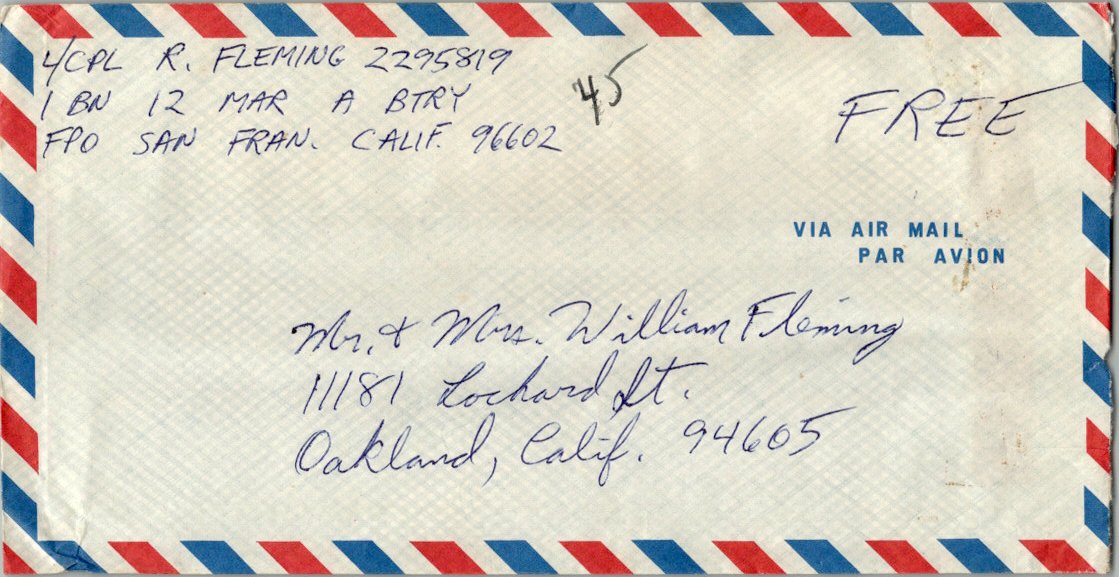 L/CPL R. FLEMING 2295819
1 BN 12 MAR A BTRY
FPO SAN FRAN. CALIF. 96602
45
FREE
VIA AIR MAIL
PAR AVION
Mr. & Mrs. William Fleming
11181 Lochard St.
Oakland, Calif. 94605